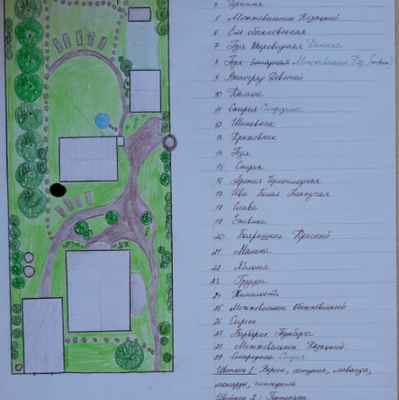 4 Черешня
5 Можжевельник Казацкий
6 Ель обыкновенная
7 Туя Шаровидная Даника
8 Туя западная Можжевельник Каз.
9 Виноград Девичий
10 Калина
11 Спирея Смородина
12 Шиповник
13 Крыжовник
14 Туя
15 Спирея
16 Арония Черноплодная
17 Ива Белая Плакучая
18 Слива
19 Ежевика
20 Боярышник Красный
21 Малина
22 Яблоня
23 Груша
24 Жимолость
25 Можжевельник Обыкновенный
26 Сирень
27 Барбарис Тунберга
28 Можжевельник Казацкий
29 Смородина Спирея
Цветник 1: Вереск, лаванда,
Цветник 2: Гортензия